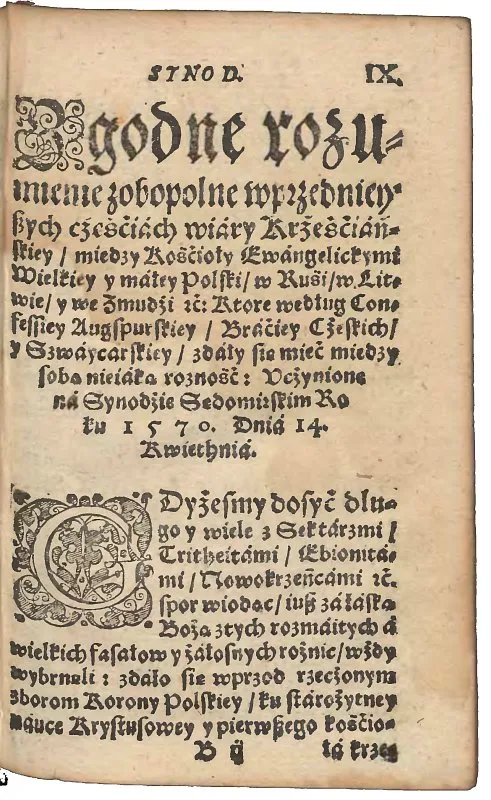 SYNOD. IX.
Zgodne rozu-
mienie zobopolne wprzedniey-
ßych cżeśćiách wiáry Krżeśćiáń-
skiey / miedzy Kośćioły Ewángelickymi
Wielkiey y máłey Polski / w Ruśi / w Lit-
wie / y we Zmudźi ꝛc: Ktore według Con-
fessiey Augspurskiey / Bráćiey Cżeskich /
y Szwáycárskiey / zdáły sie mieć miedzy
sobą nieiáką roznosć : Vcżynione
ná Synodźie Sędomirskim Ro
ku 1570. Dniá 14.
Kwiethniá.
GDyżesmy dosyć dłu-
go y wiele z Sektárzmi /
Tritheitámi / Ebionitá-
mi / Nowokrzeńcámi ꝛc.
spor wiodąc / iuß zá łáską
Bożą z tych rozmáitych á
wielkich fasałow y żáłosnych roźnic / wżdy
wybrnęli : zdáło sie wprzod rzecżonym
zborom Korony Polskiey / ku stárożytney
náuce Krystusowey y pierwßego kośćio-
B ij łá krze-